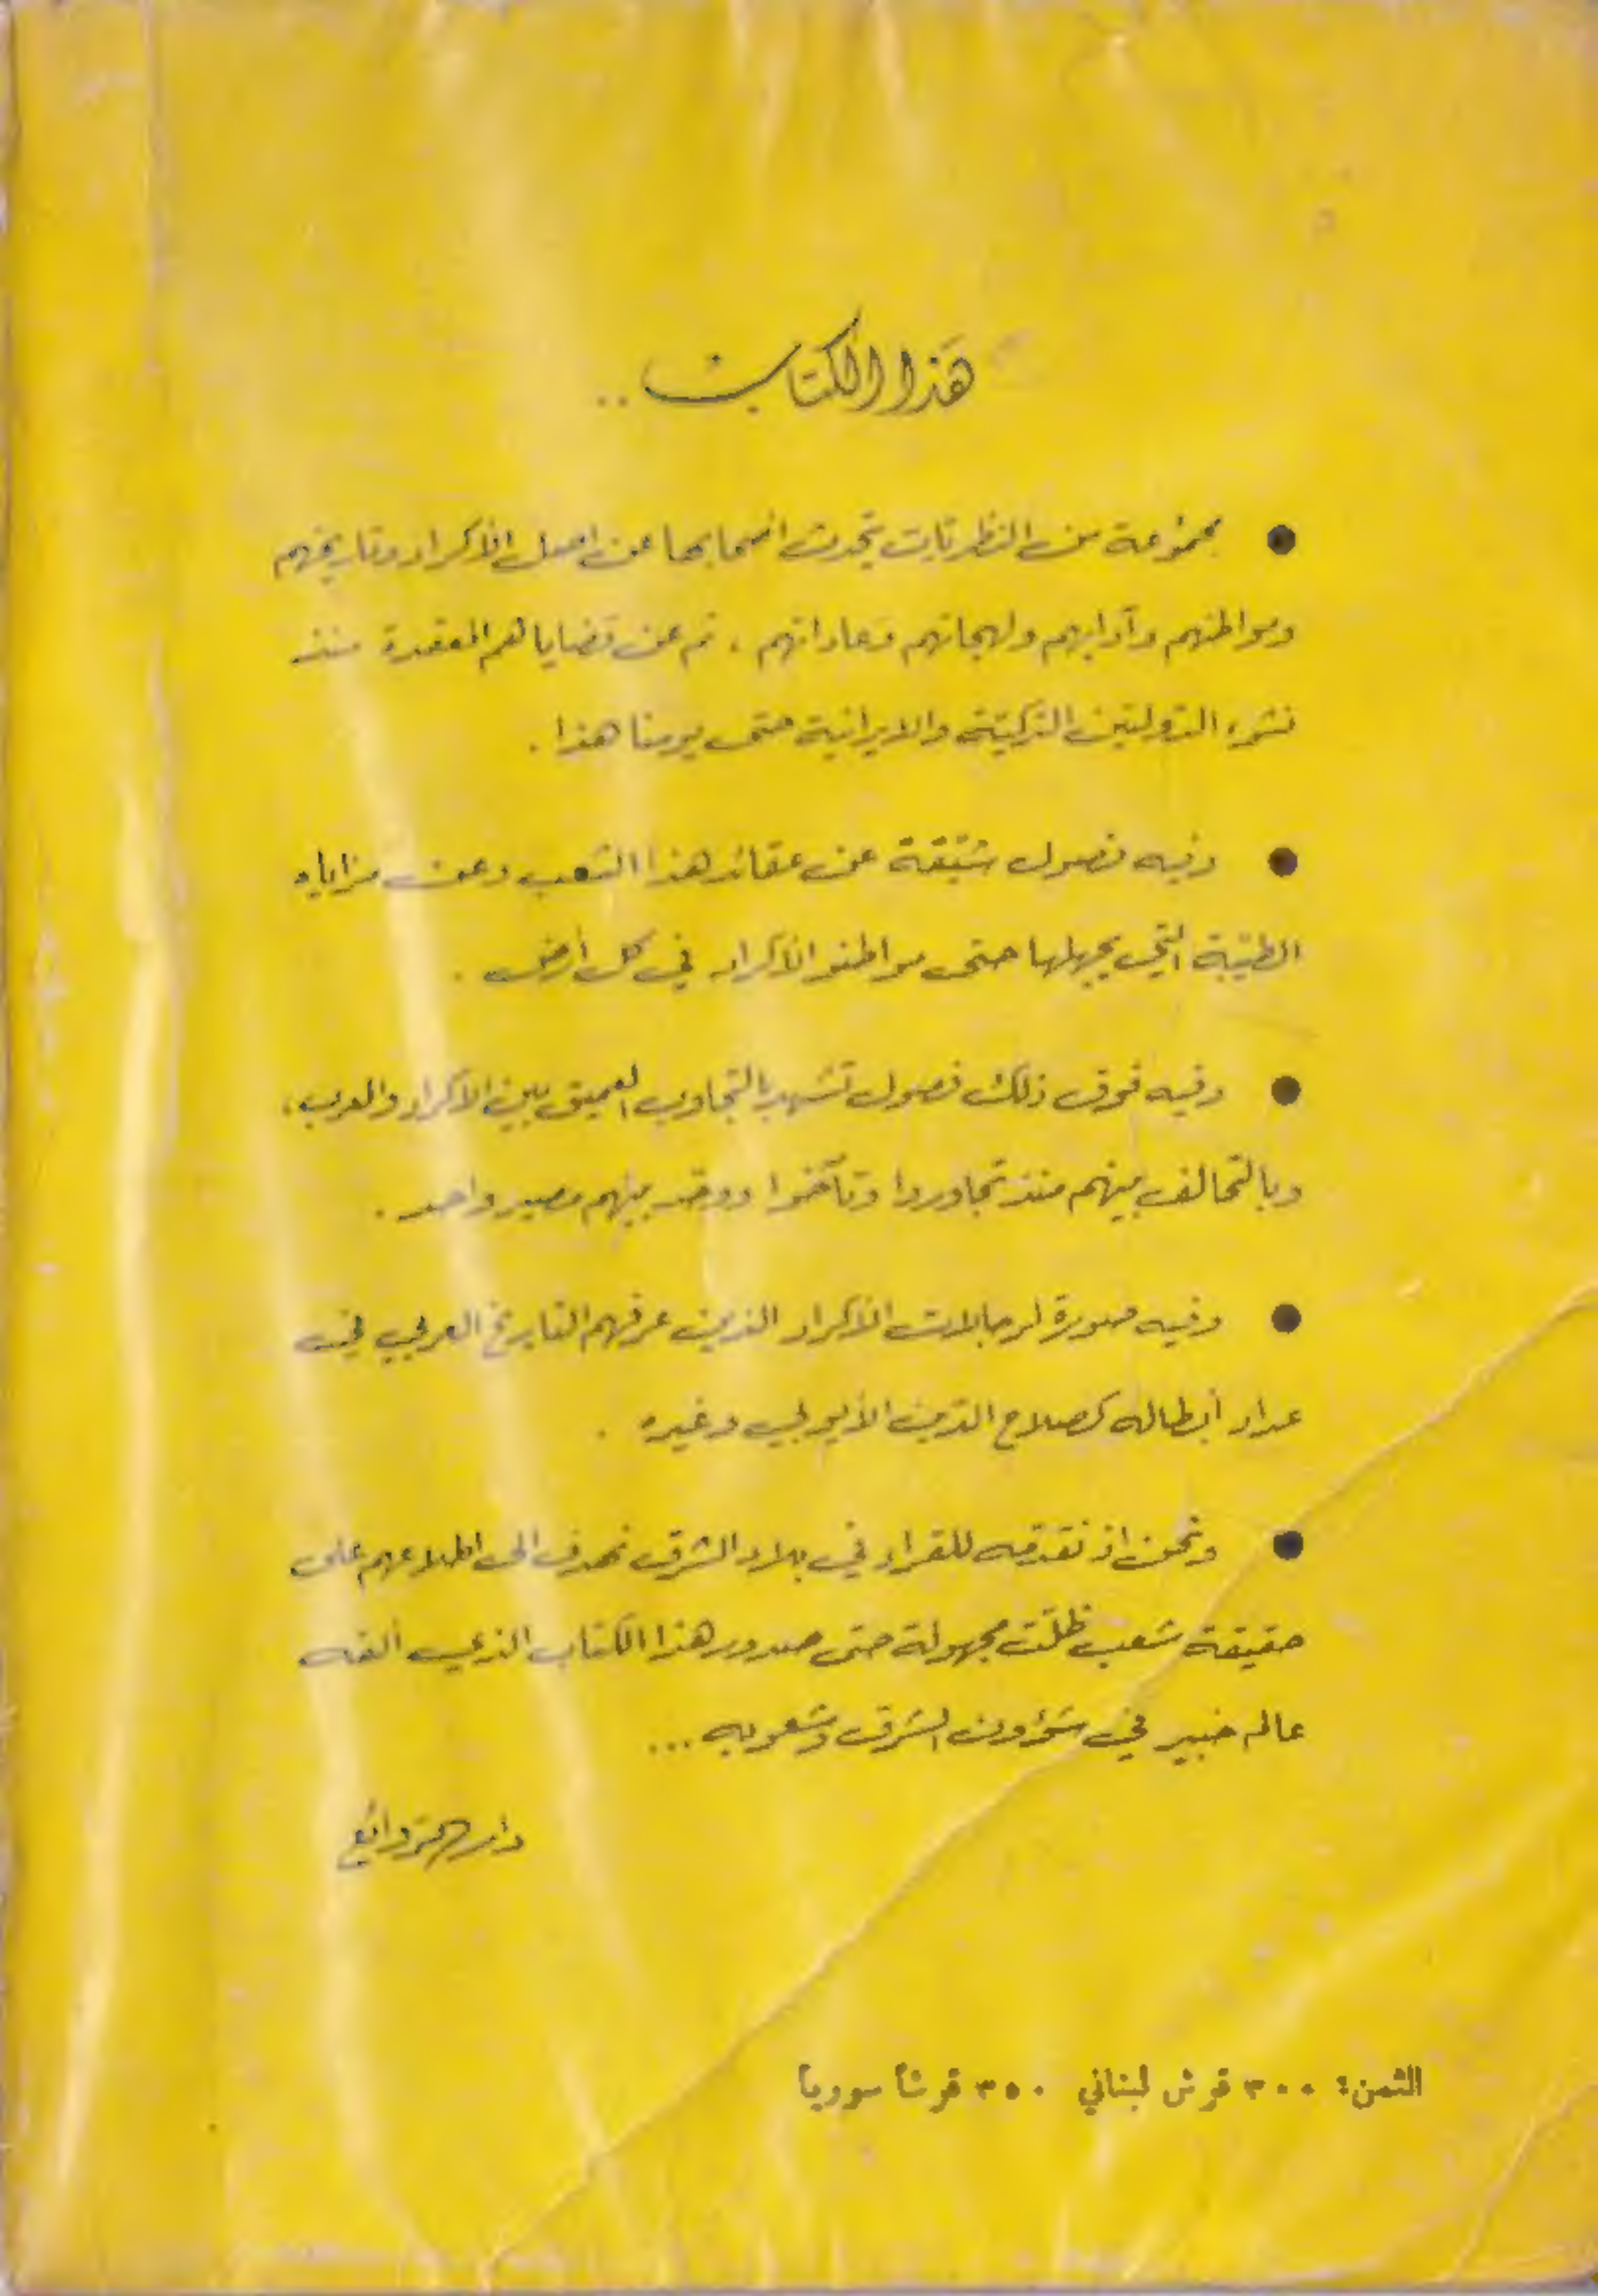 هذا الكتاب ..
● مجموعة من النظريات يتحدث أصحابها عن اصل الأكراد وتاريخهم
ومواطنهم وآدابهم ولهجاتهم وعاداتهم ، ثم عن قضاياهم المعقدة منذ
نشوء الدولتين التركيّة والايرانية حتى يومنا هذا .
● وفيه فصول شيّقة عن عقائد هذا الشعب وعن مزاياه
الطيّبة التي يجهلها حتى مواطنو الأكراد في كل أرض .
● وفيه فوق ذلك فصول تشهد بالتجاوب العميق بين الأكراد والعرب ،
وبالتحالف بينهم منذ تجاوروا وتآخوا ووحّد بينهم مصير واحد .
● وفيه صورة لرجالات الأكراد الذين عرفهم التاريخ العربي في
عداد أبطاله كصلاح الدّين الأيوبي وغيره .
● ونحن اذ نقدّمه للقراء في بلاد الشرق نهدف الى اطلاعهم على
حقيقة شعب ظلّت مجهولة حتى صدور هذا الكتاب الذي ألفه
عالم خبير في شؤون الشرق وشعوبه ...
دار الروائع
الثمن : ٣٠٠ قرش لبناني ٣٥٠ قرشاً سورياً